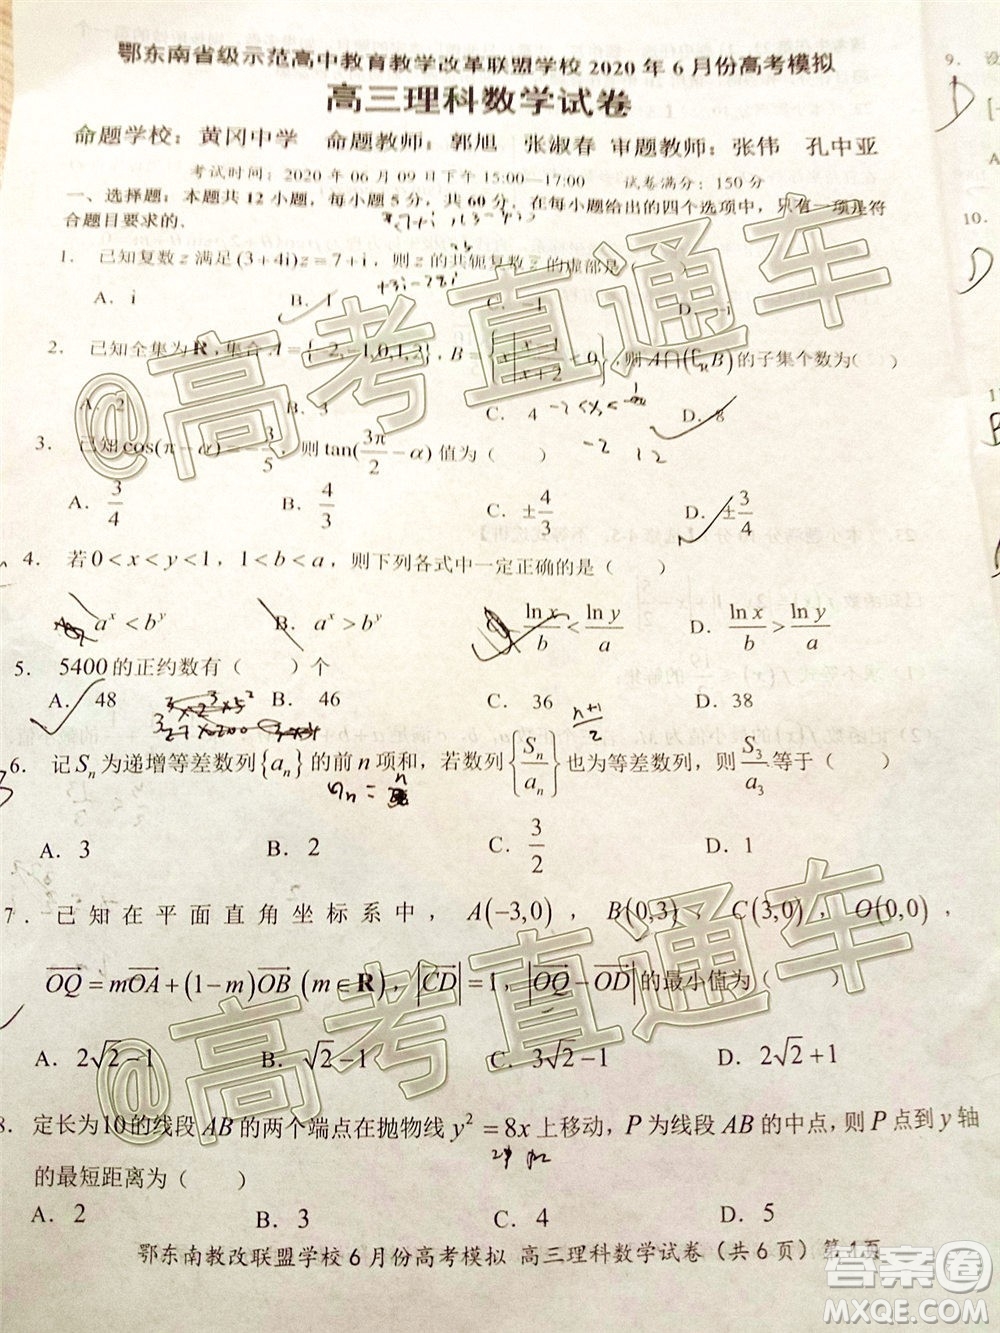 鄂东南省级示范高中教育教学改革联盟学校 2020 年 6 月份高考模拟
高三理科数学试卷
命题学校：黄冈中学 命题教师：郭旭 张淑春 审题教师：张伟 孔中亚
考试时间：2020 年 06 月 09 日下午 15:00—17:00 试卷满分：150 分
一、选择题：本题共 12 小题，每小题 5 分，共 60 分，在每小题给出的四个选项中，只有一项是符
合题目要求的.
1. 已知复数 z 满足(3+4i)z=7+i，则 z 的共轭复数 z̄ 的虚部是（ ）
A. i B. 1 C. -1 D. -i
2. 已知全集为 R，集合 A={-2,-1,0,1,2}，B={x|(x-1)/(x+2)<0}，则 A∩(∁RB)的子集个数为（ ）
A. 2 B. 3 C. 4 D. 8
-2
3. 已知 cos(π-α)=-3/5，则 tan(3π/2-α)值为（ ）
A. 3/4 B. 4/3 C. ±4/3 D. ±3/4
4. 若 0<x<y<1，1<b<a，则下列各式中一定正确的是（ ）
A. a^x<b^y B. a^x>b^y C. ln x/b<ln y/a D. ln x/b>ln y/a
5. 5400 的正约数有（ ）个
A. 48 B. 46 C. 36 D. 38
27×200
(n+1)/2
6. 记 Sn 为递增等差数列{an}的前 n 项和，若数列{Sn/an}也为等差数列，则S3/a3等于（ ）
A. 3 B. 2 C. 3/2 D. 1
7. 已知在平面直角坐标系中，A(-3,0)，B(0,3)，C(3,0)，O(0,0)，
OQ=mOA+(1-m)OB (m∈R)，|CD|=1，|OQ-OD|的最小值为（ ）
A. 2√2-1 B. √2-1 C. 3√2-1 D. 2√2+1
8. 定长为10的线段 AB 的两个端点在抛物线 y²=8x 上移动，P 为线段 AB 的中点，则 P 点到 y 轴
的最短距离为（ ）
A. 2 B. 3 C. 4 D. 5
鄂东南教改联盟学校 6 月份高考模拟 高三理科数学试卷（共 6 页）第 1页
@高考直通车
@高考直通车
答案圈
MXQE.COM
9. 设
10.